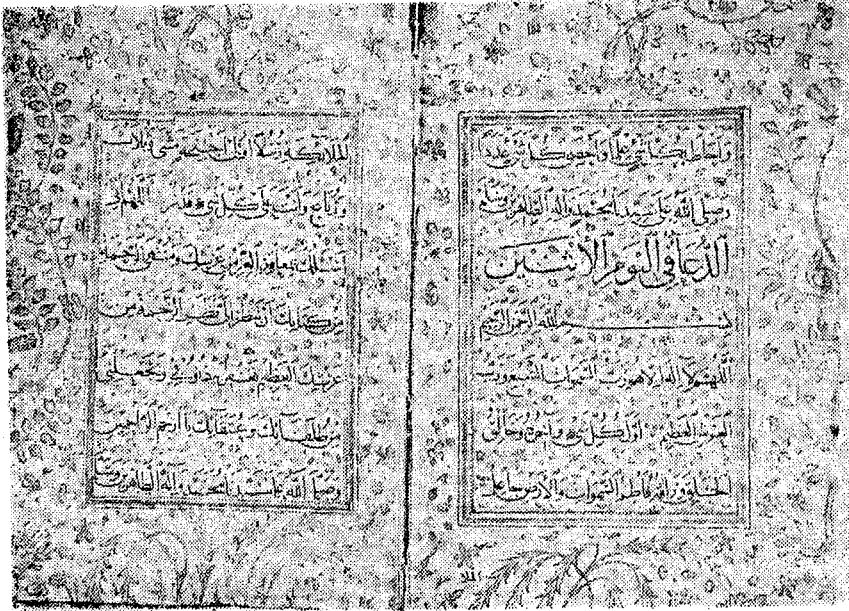 وأحاط بكل شيء علما وأحصى كل شيء عددا
وصلى الله على سيدنا محمد وآله الطاهرين وسلم
الدعا في اليوم الاثنين
بسم الله الرحمن الرحيم
اللهم لا اله الا هو رب السموات السبع ورب
العرش العظيم أول كل شيء وآخره وخالق
الخلق ورازقه فاطر السموات والأرض جاعل
الملا
الملائكة رسلا أولي أجنحة مثنى وثلاث
ورباع وأنت على كل شيء قدير اللهم إني
أسئلك بمعاقد العز من عرشك ومنتهى الرحمة
من كتابك أن تنظر إلي نظر الرحمة من
عرشك العظيم وتجعلني
من طلقائك وعتقائك يا أرحم الراحمين
وصلى الله على سيدنا محمد وآله الطاهرين وسلم